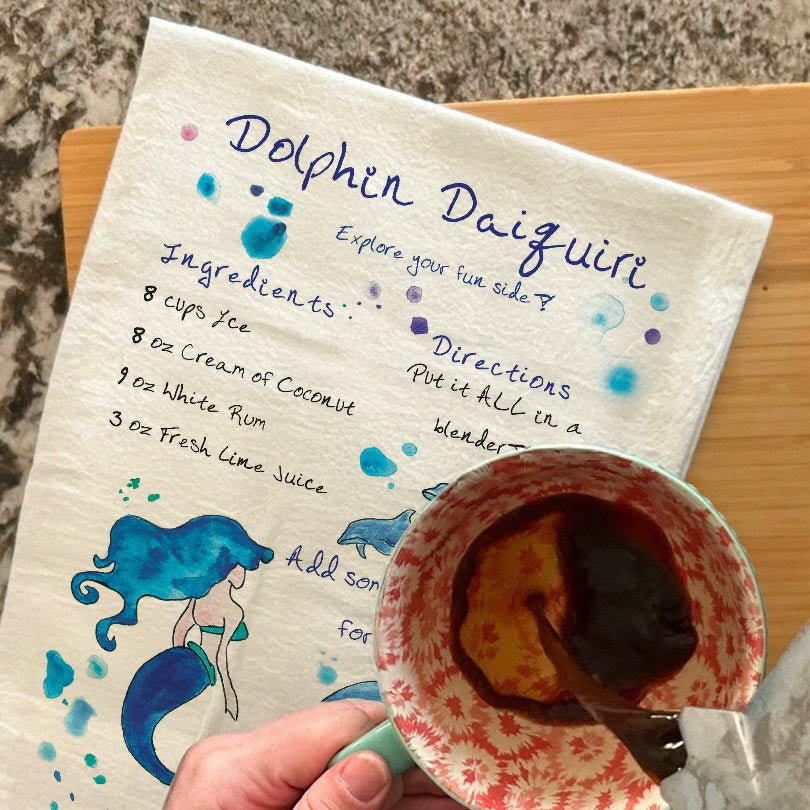 Dolphin Daiquiri
Explore your fun side!
Ingredients
8 cups Ice
8 oz Cream of Coconut
9 oz White Rum
3 oz Fresh Lime Juice
Directions
Put it ALL in a
blender
Add
for